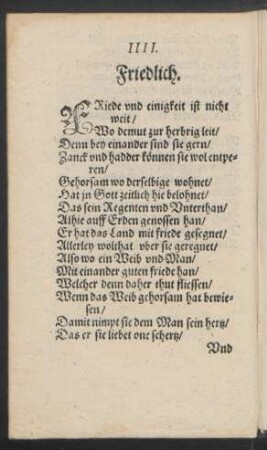 IIII.
Friedlich.
FRiede vnd einigkeit ist nicht
weit/
Wo demut zur herbrig leit/
Denn bey einander sind sie gern/
Zanck vnd hadder können sie wol entpe-
ren/
Gehorsam wo derselbige wohnet/
Hat jn Gott zeitlich hie belohnet/
Das sein Regenten vnd Vnterthan/
Alhie auff Erden genossen han/
Er hat das Land mit friede gesegnet/
Allerley wolthat vber sie geregnet/
Also wo ein Weib vnd Man/
Mit einander guten friede han/
Welcher denn daher thut fliessen/
Wenn das Weib gehorsam hat bewie-
sen/
Damit nimpt sie dem Man sein hertz/
Das er sie liebet one schertz/
Vnd